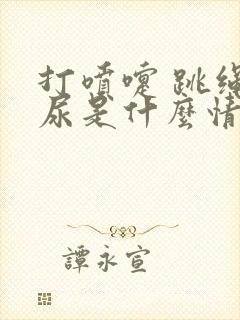 打噴嚏 跳繩
尿是什麼情
譚永宣